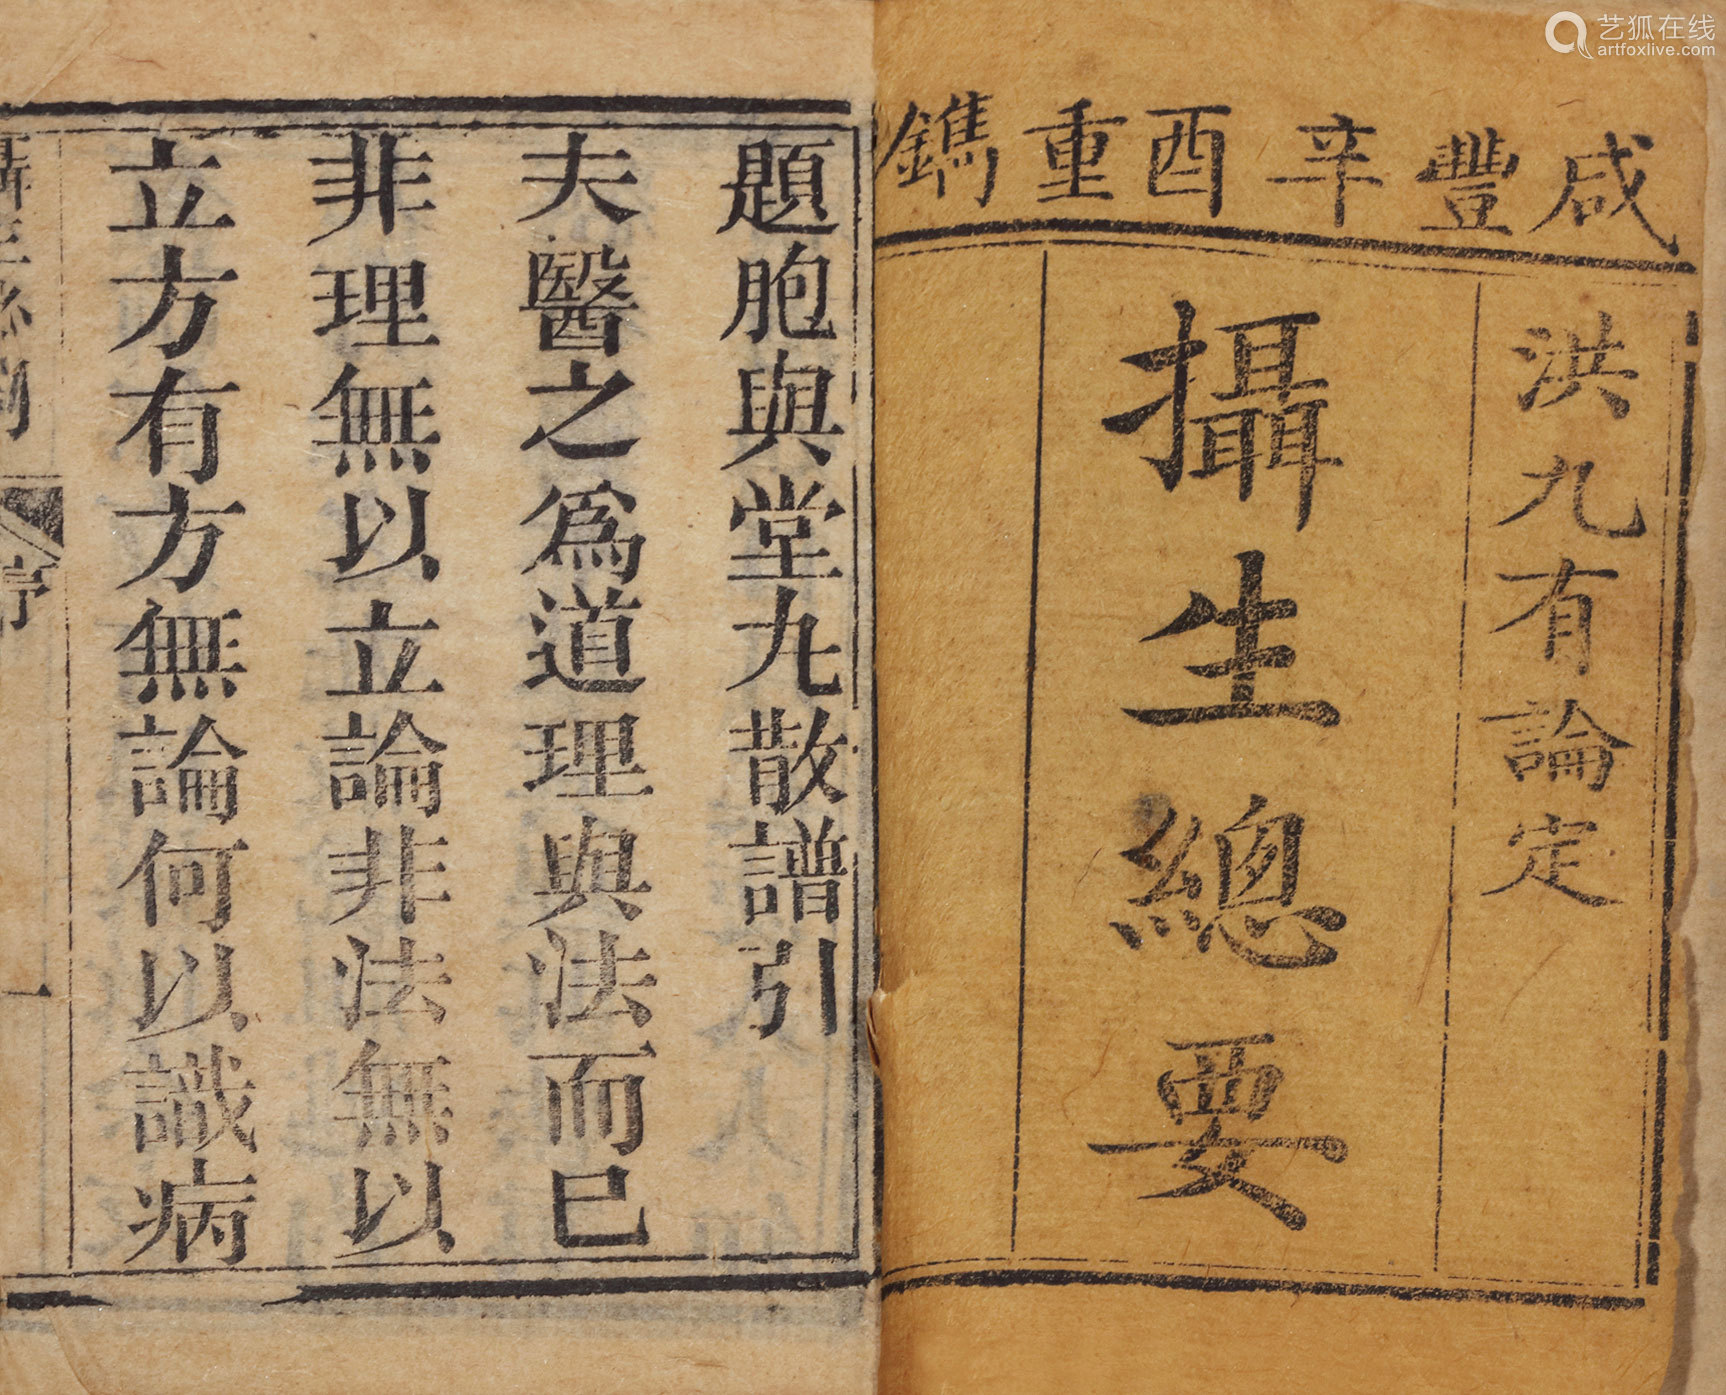 艺狐在线
artfoxlive.com
咸豐辛酉重鐫
洪九有論定
攝生總要
題胞與堂九散譜引
夫醫之爲道理與法而已
非理無以立論非法無以
立方有方無論何以識病
序
一